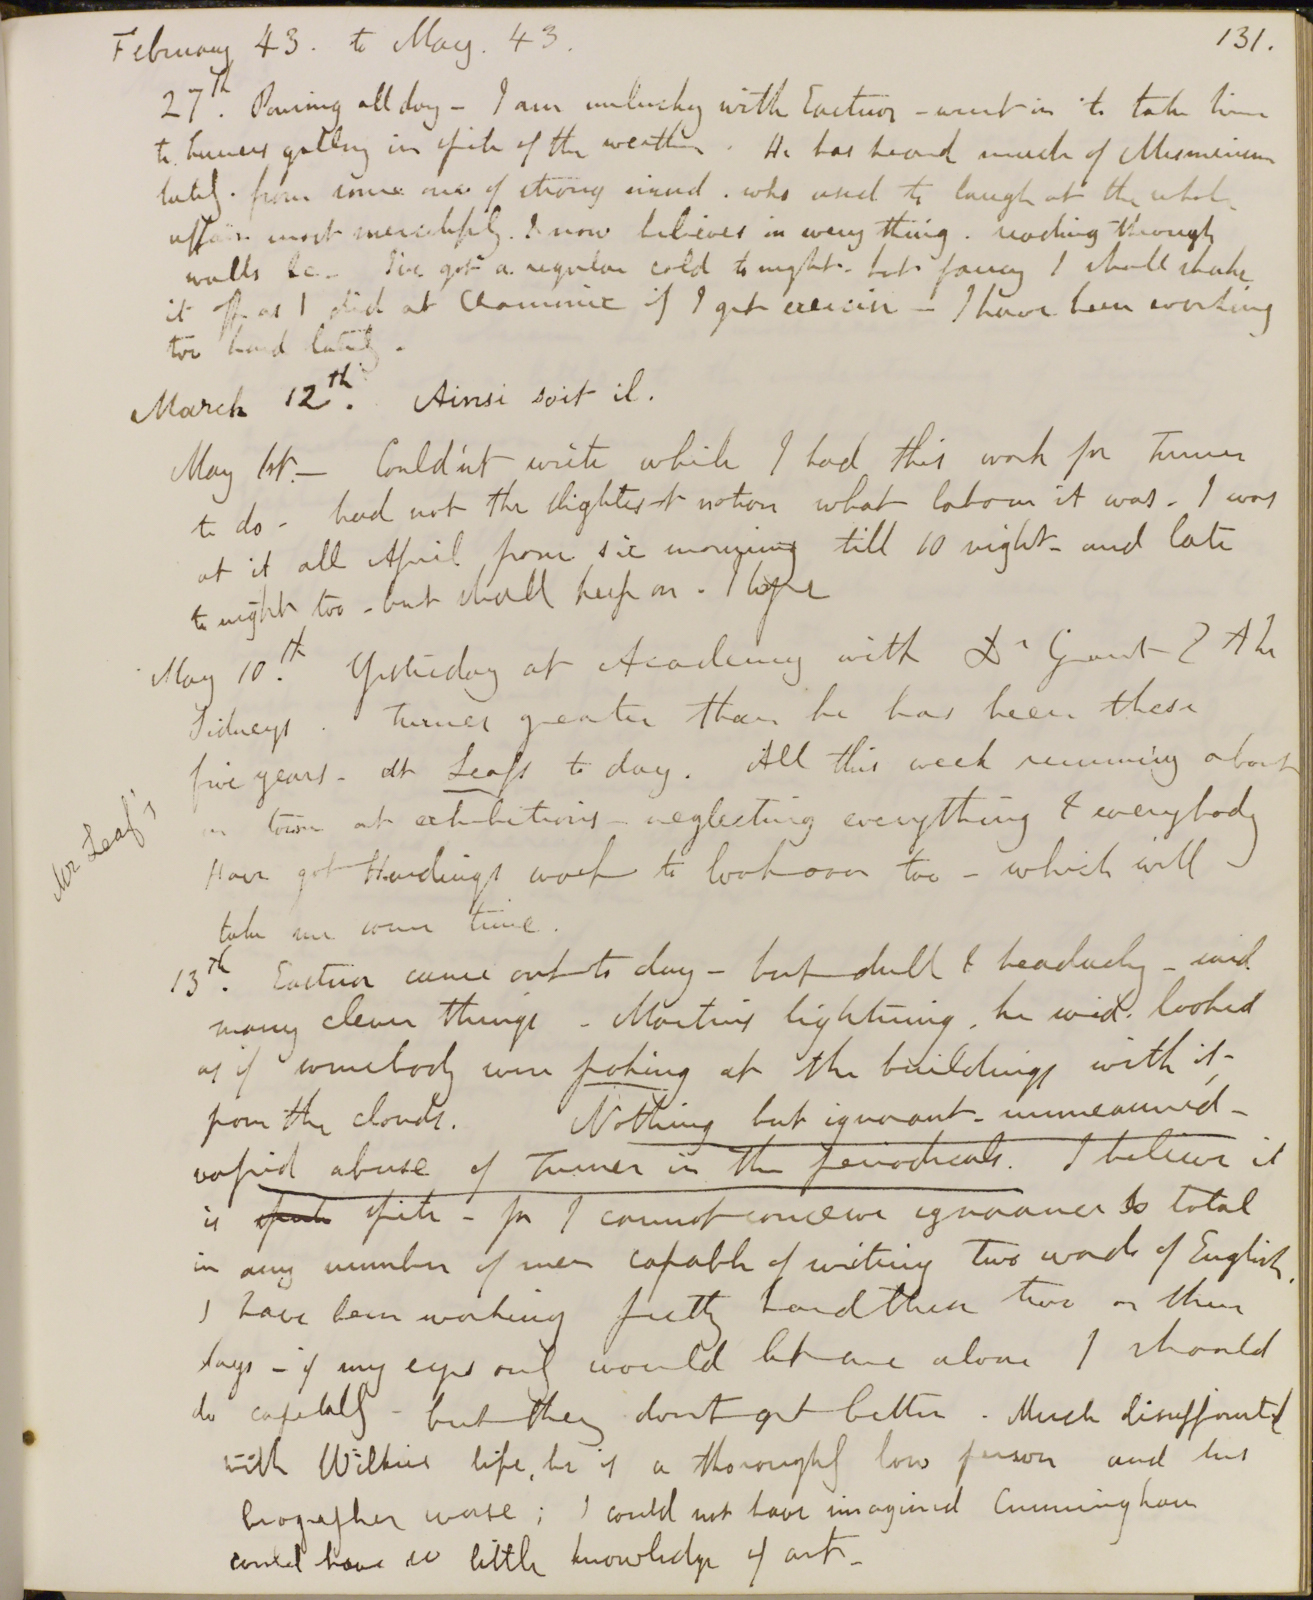 February 43. to May. 43.
131.
27th. Pouring all day - I am unlucky with Eastnor - went in to take him
to Turners gallery in spite of the weather. He has heard much of Mesmerism
lately. from some one of strong mind. who used to laugh at the whole
affair most mercilessly. & now believes in every thing. reading through
walls &c - I've got a regular cold to night - but fancy I shall shake
it off as I did at Chamonix if I get exercise - I have been working
too hard lately.
March 12th. Ainsi soit il.
May 1st. - Could'nt write while I had this work for Turner
to do - had not the slightest notion what labour it was. I was
at it all April from six morning till 10 night - and late
to night too - but shall keep on - I hope
May 10th. Yesterday at Academy with Dr Grant & the
Sidneys. Turner greater than he has been these
five years - at Leafs to day. All this week running about
Mr Leaf's
in town at exhibitions - neglecting everything & everybody
Have got Hardings work to look over too - which will
take me some time.
13th. Eastnor came out to day - but dull & headachy - said
many clever things - Martins lightning, he said, looked
as if somebody were poking at the buildings with it -
from the clouds. Nothing but ignorant - unmeasured -
vapid abuse of Turner in the periodicals. I believe it
is spite - for I cannot conceive ignorance so total
in any number of men capable of writing two words of English.
I have been working pretty hard these two or three
days - if my eyes only would let me alone I should
do capitally - but they dont get better. Much disappointed
with Wilkies life, he is a thoroughly low person and his
biographer worse; I could not have imagined Cunningham
could have so little knowledge of art -